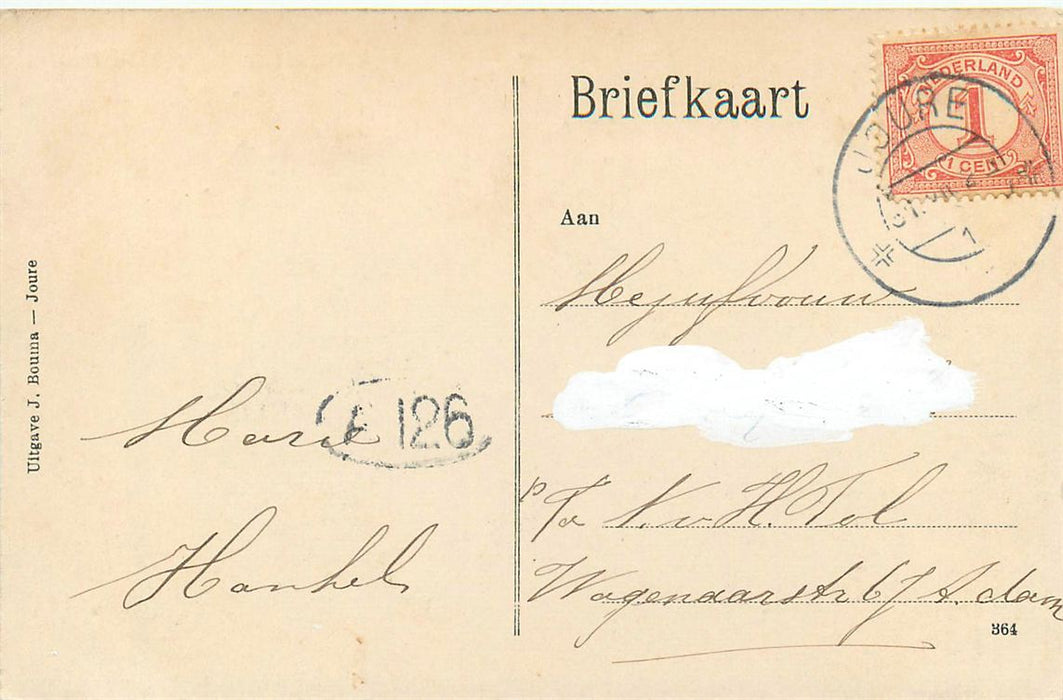 Briefkaart
NEDERLAND
1
1 CENT
JOURE
1
Aan
Mejufvouw
p/a N. v. H. Tol
Wagenaarstr 67 A.dam
364
Marie
126
Hankel
Uitgave J. Bouma — Joure